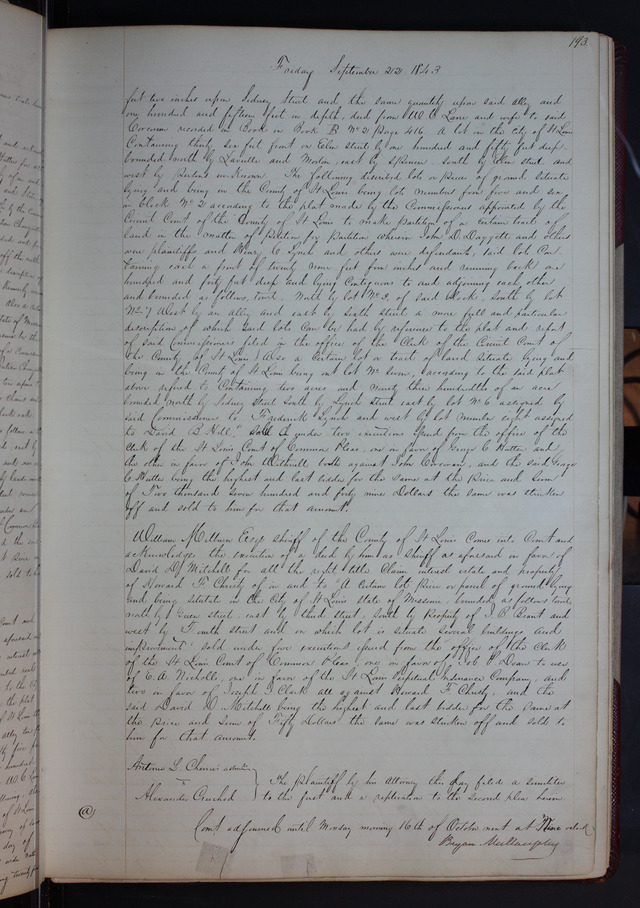 193.
Friday September 22 1843
feet two inches upon Sidney Street and the same quantity upon said alley and
one hundred and fifteen feet in depth, deed from W C Lane and wife to said
Corcoran recorded in Book B No 2 page 416 A lot in the City of St Louis
Containing thirty six feet front on Elm street by one hundred and fifty feet deep
bounded north by Laveille and Morton, east by Spencer South by Elm street and
west by Persons unKnown. The following described lots or pieces of ground Situate
lying and being in the County of St Louis being lots numbers four five and six,
in block No 2 according to the plat made by the Commissioners appointed by the
Circuit Court of the County of St Louis to make partition of a certain tract of
land in the matter of Petition for Partition wherein John D. Daggett and others
were plaintiffs and Henry C. Lynch and others were defendants, said lots Con-
taining each a front of twenty nine feet four inches and running back one
hundred and forty feet deep and lying Contiguous to and adjoining each other
and bounded as follows, towit. North by lot No 3. of said block, South by lot
No 7 West by an alley and east by Sixth street a more full and particular
description of which said lots Can be had by reference to the plat and report
of said Commissioners filed in the office of the Clerk of the Circuit Court of
the County of St Louis, Also a Certain lot or tract of land situate lying and
being in the County of St Louis being out lot No Seven, according to the said plat
above referred to Containing two acres and ninety three hundredths of an acre
bounded north by Sidney Street South by Lynch street east by lot No 6 assigned by
said Commissioners to Frederick Lynch and west by lot number eight assigned
to David B Hill," Sold under two executions issued from the office of the
Clerk of the St Louis Court of Common Pleas, one in favor of George C Hutter and
the other in favor of John Withnell both against John Corcoran, and the said George
C Hutter being the highest and last bidder for the Same at the Price and Sum
of Two thousand Seven hundred and forty nine Dollars the same was stricken
off and sold to him for that amount.
William Milburn Esqr sheriff of the County of St Louis Comes into Court and
acknowledges the execution of a deed by him as Sheriff as aforesaid in favor of
David D Mitchell for all the right title Claim interest estate and property
of Howard F. Christy of in and to "A Certain lot, piece or parcel of ground lying
and being situate in the City of St Louis State of Missouri, bounded as follows towit,
north by Green street, east by third street, South by property of J. B. Brant and
west by Fourth street and on which lot is situate Several buildings and
improvements" sold under five executions issued from the office of the Clerk
of the St Louis Court of Common Pleas, one in favor of to use
of E. A. Nicholls, one in favor of the St Louis Perpetual Insurance Company, and
two in favor of Joseph Clark all against Howard F Christy, and the
said David D Mitchell being the highest and last bidder for the Same at
the Price and Sum of Fifty Dollars the same was stricken off and sold to
him for that amount.
Antoine L. Chenie's admin
vs
Alexander
The Plaintiff by his attorney this day filed a similiter
to the first and a replication to the second plea herein
@
Court adjourned until Monday morning 16th of October next at Nine oclock
Bryan Mullanphy